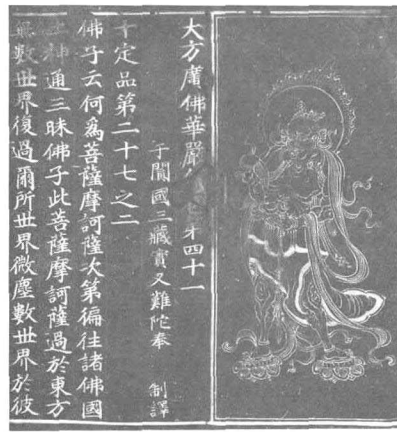 大方廣佛華嚴經卷第四十一
于闐國三藏實叉難陀奉 制譯
十定品第二十七之二
佛子云何為菩薩摩訶薩次第徧往諸佛國
土神通三昧佛子此菩薩摩訶薩過於東方
無數世界復過爾所世界微塵數世界於彼